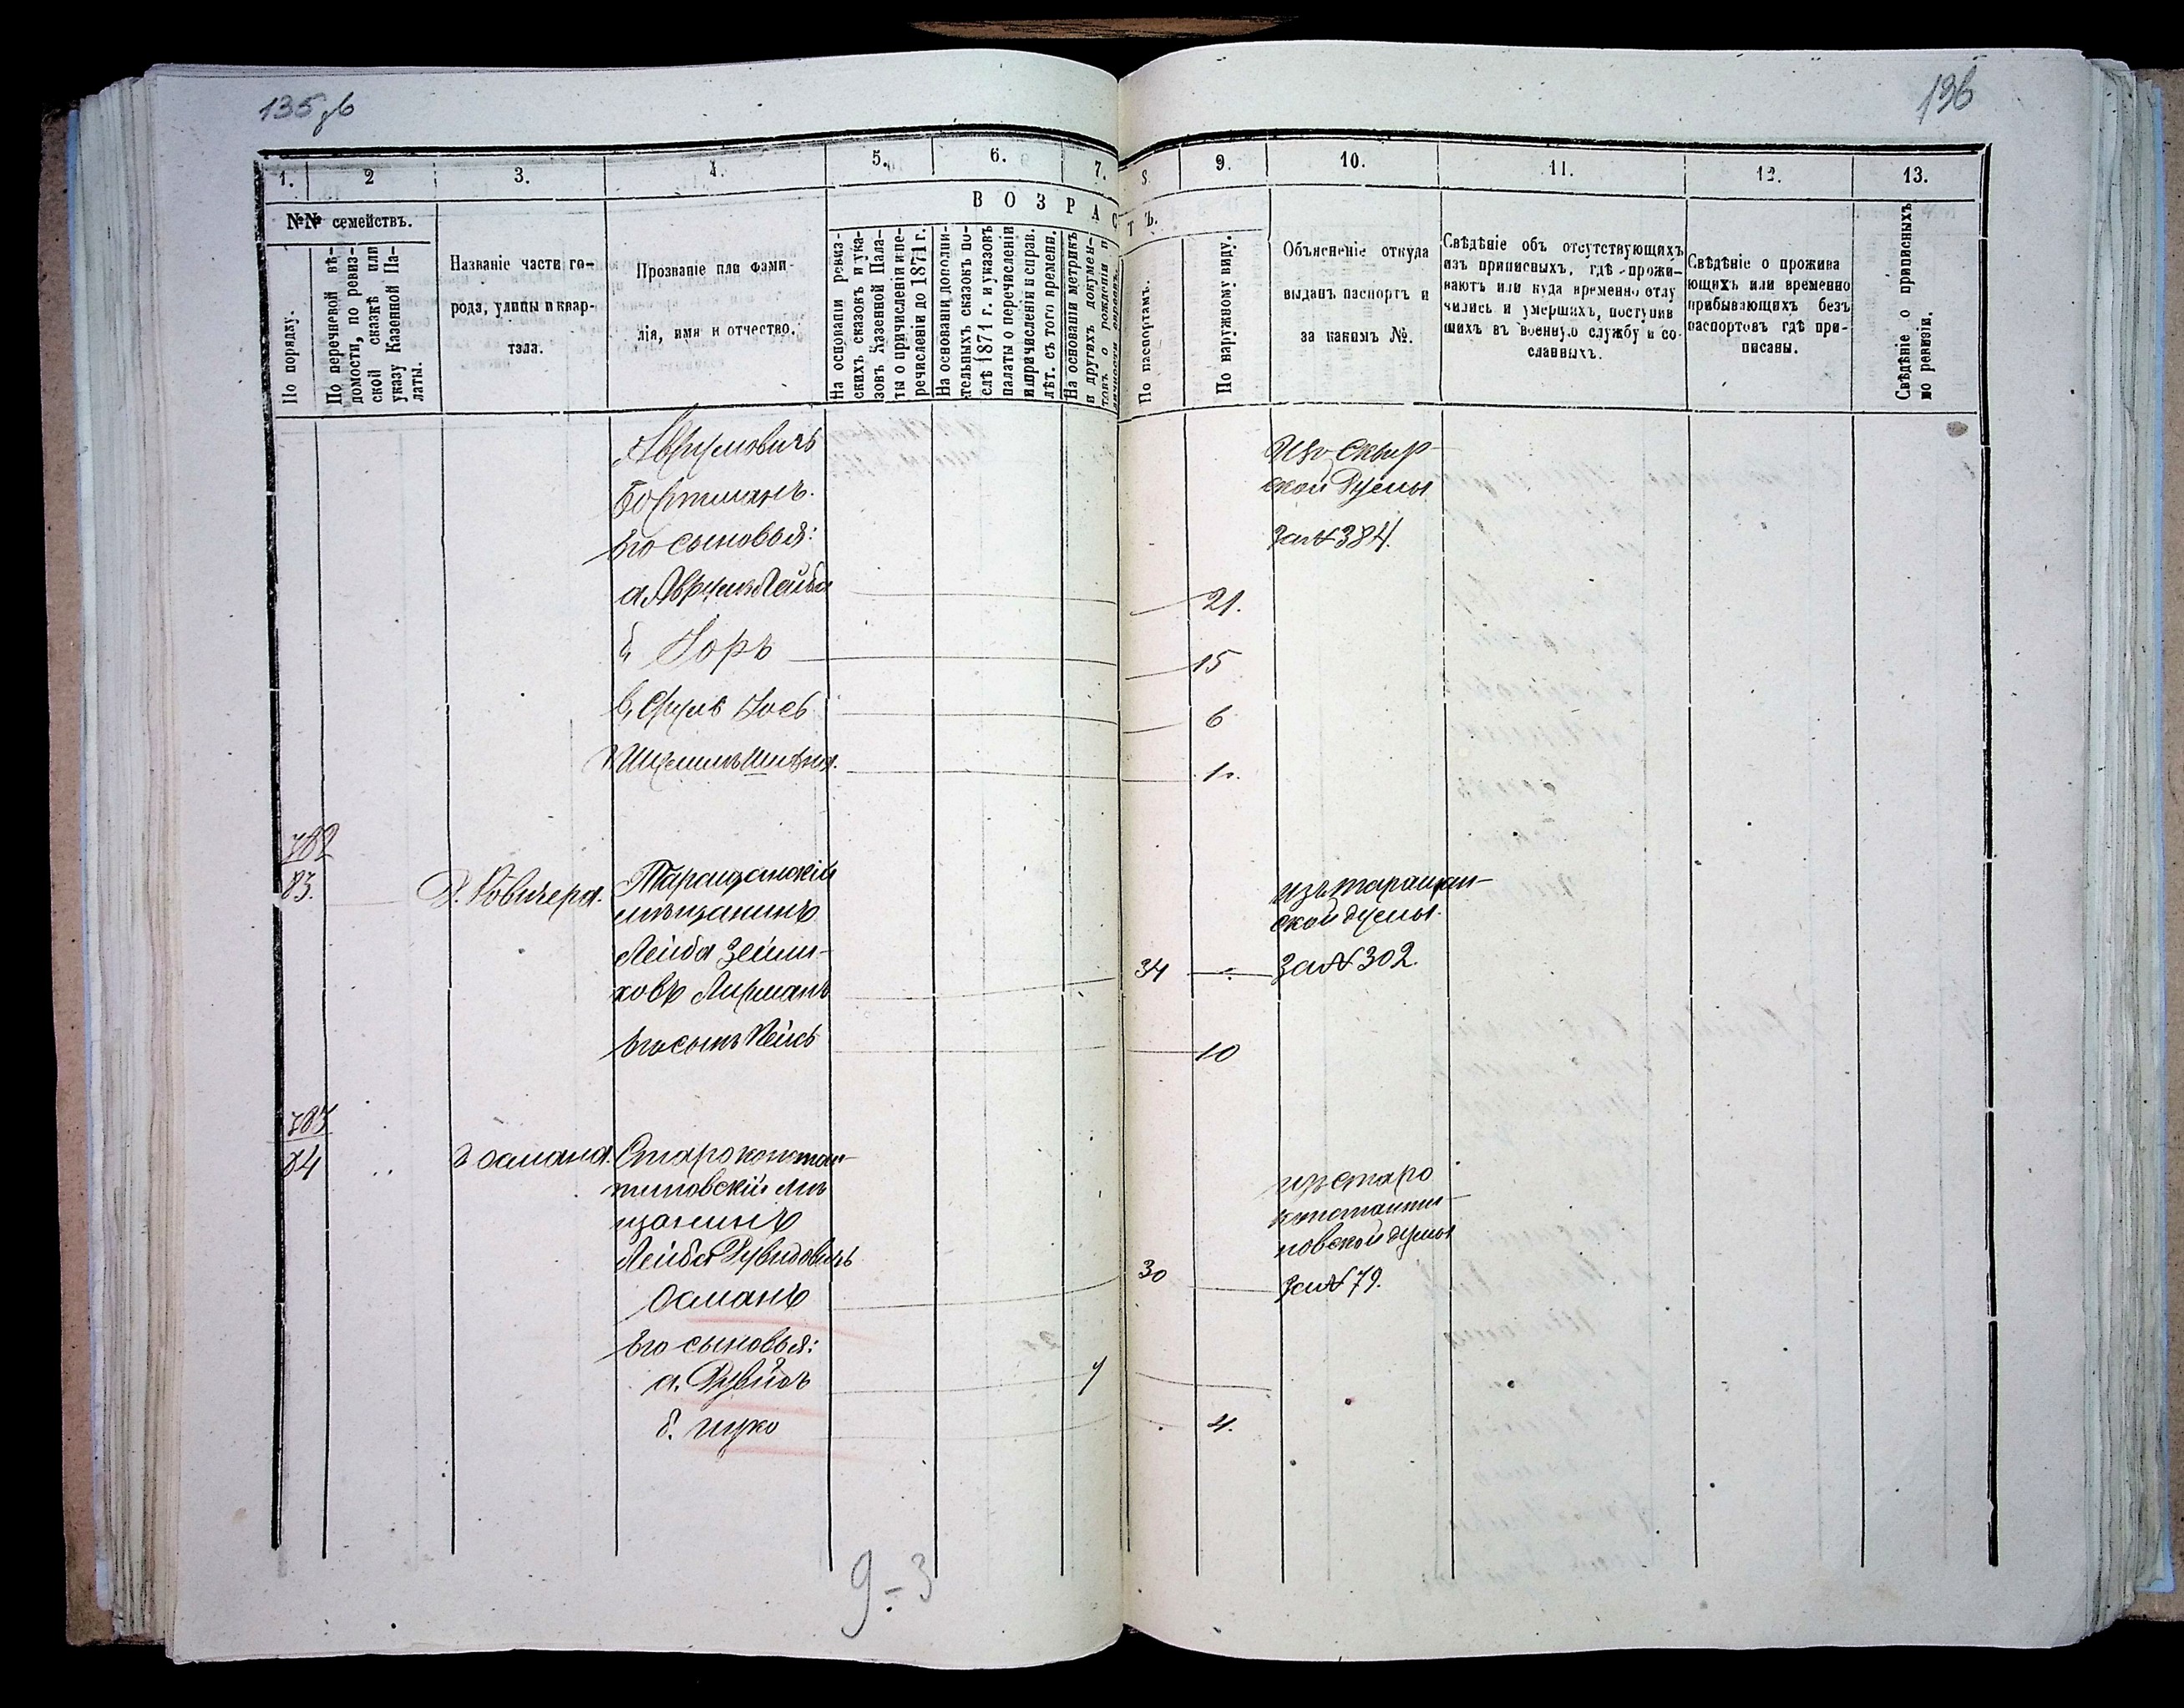 135 об
136
1.
2
3.
4.
5.
6.
7.
8.
9.
10.
11.
12.
13.
№№ семействъ.
По порядку.
По перечневой вѣ-
домости, по ревиз-
ской сказкѣ или
указу Казенной Па-
латы.
Названіе части го-
рода, улицы и квар-
тала.
Прозваніе или фами-
лія, имя и отчество.
ВОЗРАСТЪ.
На основаніи ревиз-
скихъ сказокъ и ука-
зовъ Казенной Пала-
ты о причисленіи и пе-
речисленіи до 1871 г.
На основаніи дополни-
тельныхъ сказокъ по-
слѣ 1871 г. и указовъ
палаты о перечисленіи
и причисленіи и справ.
лѣт. съ того времени.
На основаніи метрикъ
и другихъ докумен-
товъ о рожденіи и
По паспортамъ.
По наружному виду.
Объясненіе откуда
выданъ паспортъ и
за какимъ №.
Свѣдѣніе объ отсутствующихъ
изъ приписныхъ, гдѣ прожи-
ваютъ или куда временно отлу
чились и умершихъ, поступив
шихъ въ военную службу и со-
сланныхъ.
Свѣдѣніе о прожива
ющихъ или временно
прибывающихъ безъ
паспортовъ гдѣ при-
писаны.
Свѣдѣніе о приписныхъ
по ревизіи.
Аврумовичъ
Бортманъ.
Его сыновья:
а, Аврумъ Лейба
21.
б, Хоръ
15
в, Сруль Іось
6
г, Шулимъ Шиѣна.
1 г.
Изъ Сквир-
ской Думы
За № 384.
782
83.
Таращанскій
мѣщанинъ
Лейба Зейли-
ховъ Лирманъ
34
Его сынъ Пейсъ
10
изъ таращан-
ской думы.
За № 302.
783
84
д. Османа.
Староконстан-
тиновскій мѣ
щанинъ
Лейба Дувидовичъ
Османъ
30
Его сыновья:
а. Дувидъ
7
б. Ицко
4.
изъ старо
константи-
новской думы
За № 79.
9-3